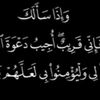 وَإِذَا سَأَلَكَ
فَإِنِّي قَرِيبٌ ۖ أُجِيبُ دَعْوَةَ
لِي وَلْيُؤْمِنُوا بِي لَعَلَّهُمْ